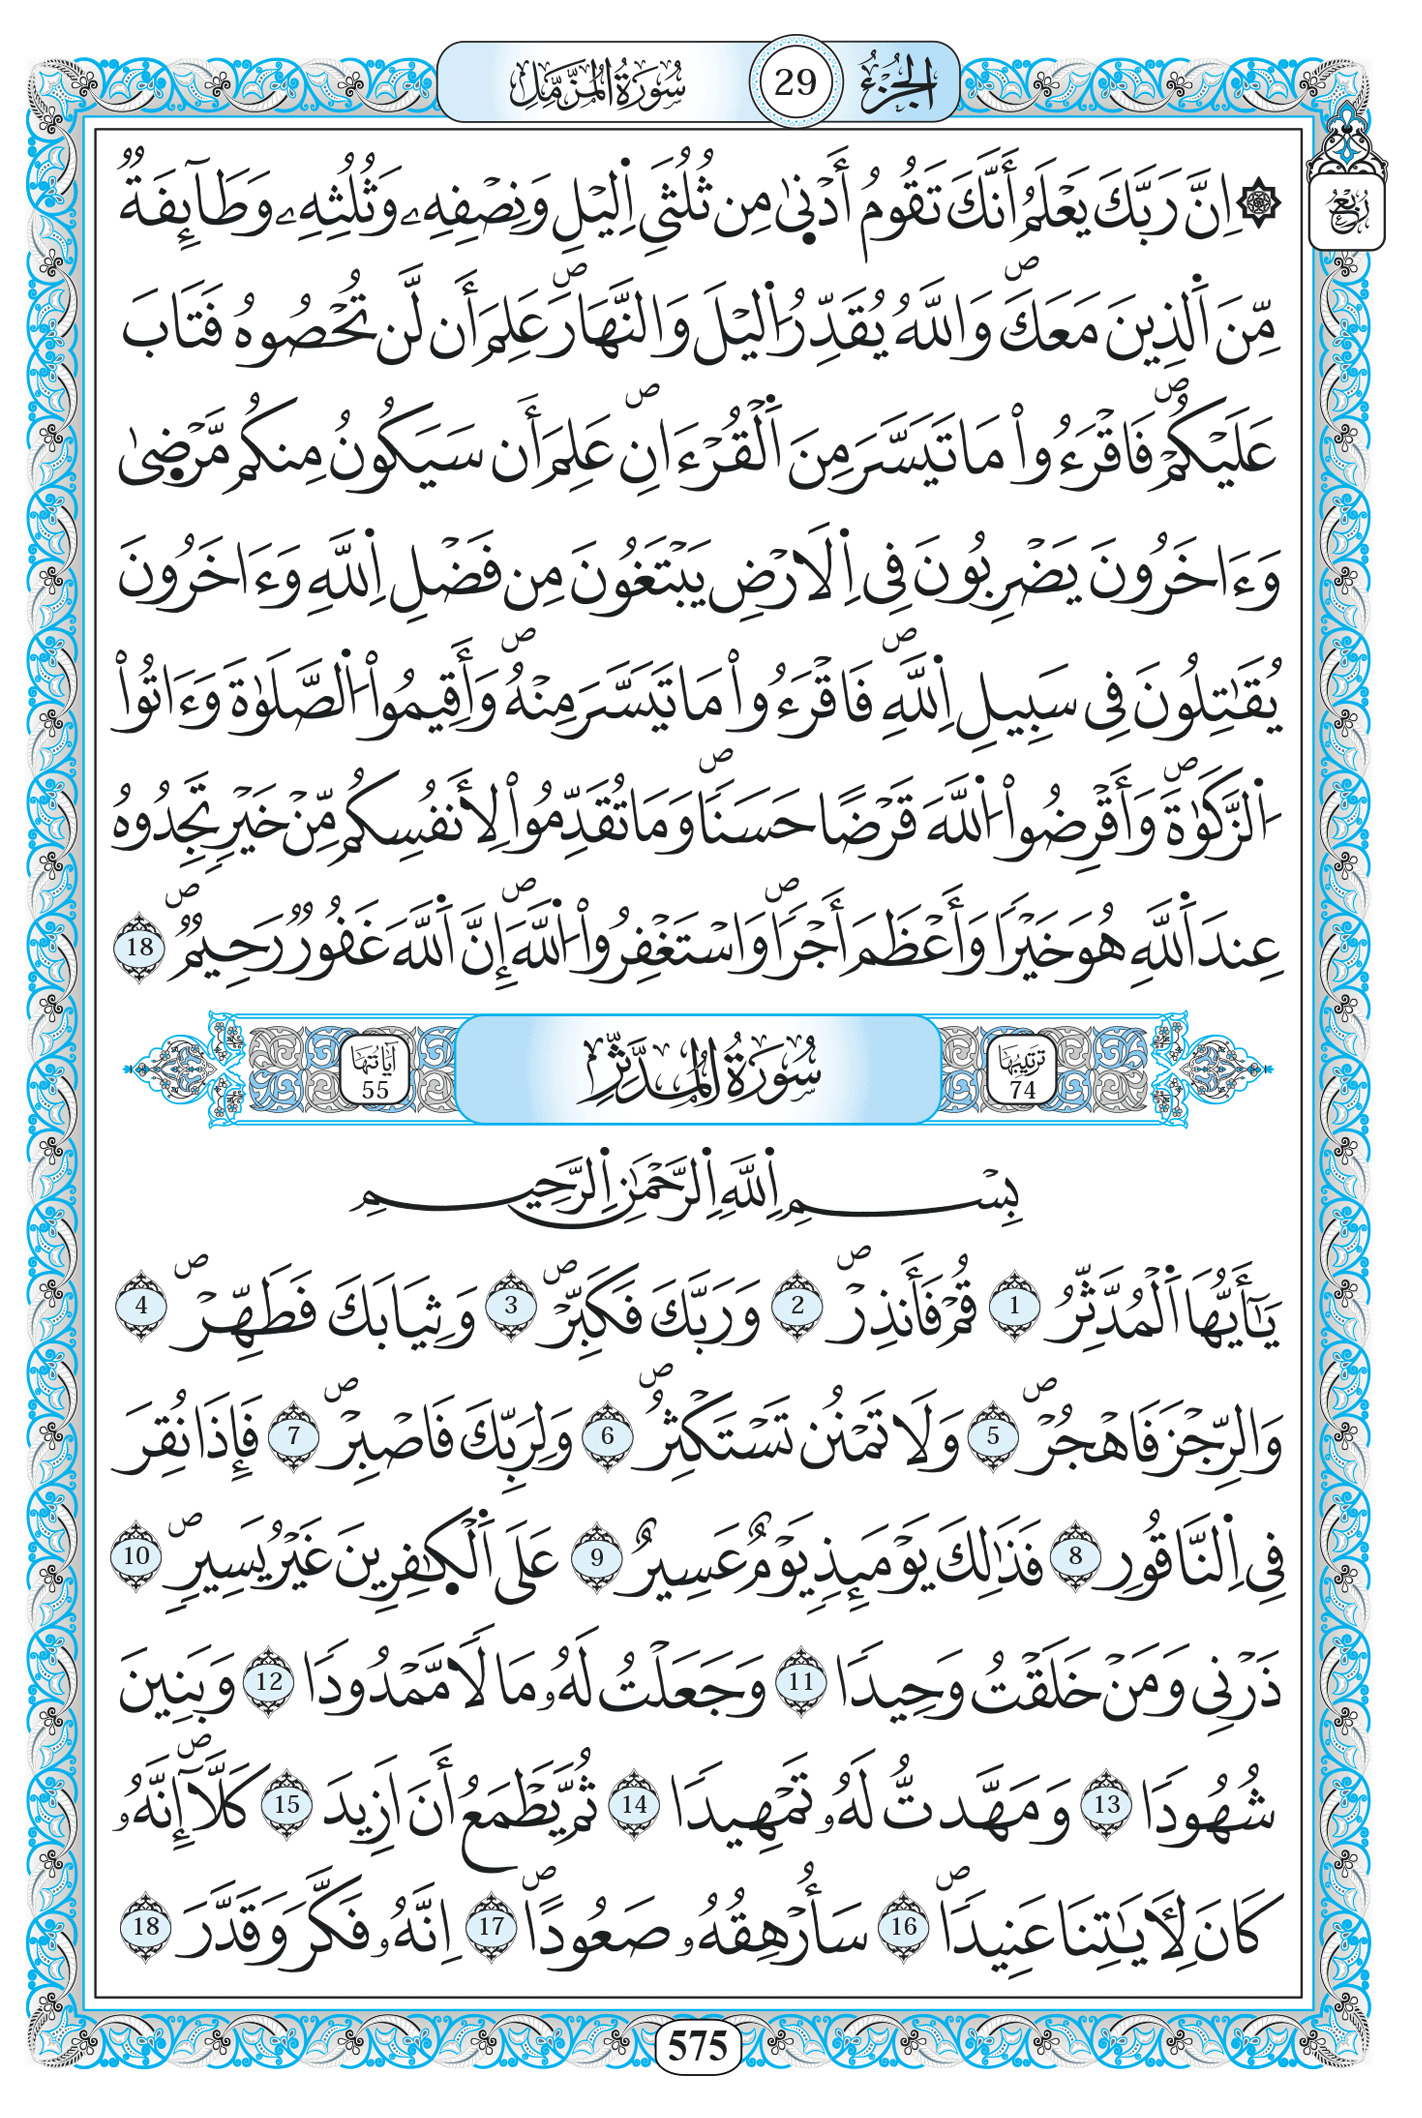 الجزء 29 سورة المزمل
ربع
۞ اِنَّ رَبَّكَ يَعْلَمُ أَنَّكَ تَقُومُ أَدْنۭىٰ مِن ثُلُثَيِ اِ۬ليْلِ وَنِصْفِهِۦ وَثُلُثِهِۦ وَطَآئِفَةٞ
مِّنَ اَ۬لذِينَ مَعَكَۖ وَاللَّهُ يُقَدِّرُ اُ۬ليْلَ وَالنَّهَارَۖ عَلِمَ أَن لَّن تُحْصُوهُ فَتَابَ
عَلَيْكُمْۖ فَاقْرَءُواْ مَا تَيَسَّرَ مِنَ اَ۬لْقُرْءَانِۖ عَلِمَ أَن سَيَكُونُ مِنكُم مَّرْضۭىٰ
وَءَاخَرُونَ يَضْرِبُونَ فِے اِ۬لَارْضِ يَبْتَغُونَ مِن فَضْلِ اِ۬للَّهِ وَءَاخَرُونَ
يُقَٰتِلُونَ فِے سَبِيلِ اِ۬للَّهِۖ فَاقْرَءُواْ مَا تَيَسَّرَ مِنْهُۖ وَأَقِيمُواْ اُ۬لصَّلَوٰةَ وَءَاتُواْ
اُ۬لزَّكَوٰةَۖ وَأَقْرِضُواْ اُ۬للَّهَ قَرْضًا حَسَنٗاۖ وَمَا تُقَدِّمُواْ لِأَنفُسِكُم مِّنْ خَيْرٖ تَجِدُوهُ
عِندَ اَ۬للَّهِ هُوَ خَيْرٗا وَأَعْظَمَ أَجْرٗاۖ وَاسْتَغْفِرُواْ اُ۬للَّهَۖ إِنَّ اَ۬للَّهَ غَفُورٞ رَحِيمٞۖ 18
ترتيبها 74 سُورَةُ الْمُدَّثِّرِ آيَاتُهَا 55
بِسْمِ اِ۬للَّهِ اِ۬لرَّحْمَٰنِ اِ۬لرَّحِيمِ
يَٰٓأَيُّهَا اَ۬لْمُدَّثِّرُ 1 قُمْ فَأَنذِرْۖ 2 وَرَبَّكَ فَكَبِّرْۖ 3 وَثِيَابَكَ فَطَهِّرْۖ 4
وَالرِّجْزَ فَاهْجُرْۖ 5 وَلَا تَمْنُن تَسْتَكْثِرُۖ 6 وَلِرَبِّكَ فَاصْبِرْۖ 7 فَإِذَا نُقِرَ
فِے اِ۬لنَّاقُورِ 8 فَذَٰلِكَ يَوْمَئِذٖ يَوْمٌ عَسِيرٌ 9 عَلَى اَ۬لْكٰ۪فِرِينَ غَيْرُ يَسِيرٖۖ 10
ذَرْنِے وَمَنْ خَلَقْتُ وَحِيدٗا 11 وَجَعَلْتُ لَهُۥ مَالٗا مَّمْدُودٗا 12 وَبَنِينَ
شُهُودٗا 13 وَمَهَّدتُّ لَهُۥ تَمْهِيدٗا 14 ثُمَّ يَطْمَعُ أَنَ اَزِيدَ 15 كَلَّآۖ إِنَّهُۥ
كَانَ لِأٓيَٰتِنَا عَنِيدٗاۖ 16 سَأُرْهِقُهُۥ صَعُودًاۖ 17 اِنَّهُۥ فَكَّرَ وَقَدَّرَ 18
575